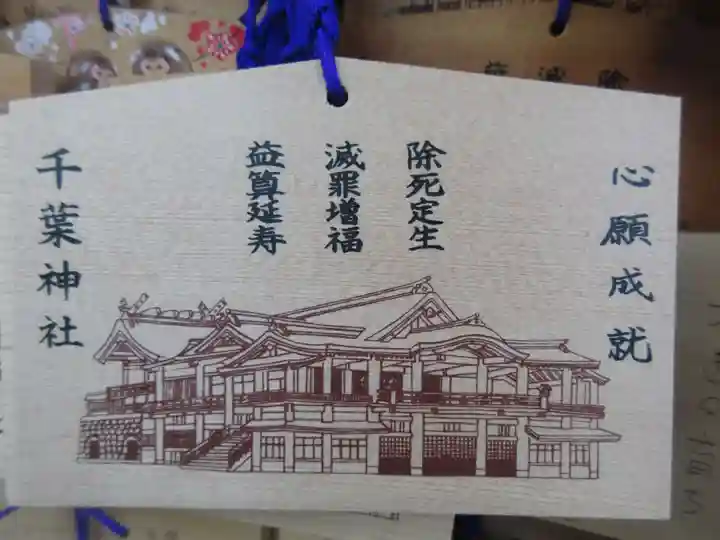 心願成就
除死定生
滅罪増福
益算延寿
千葉神社